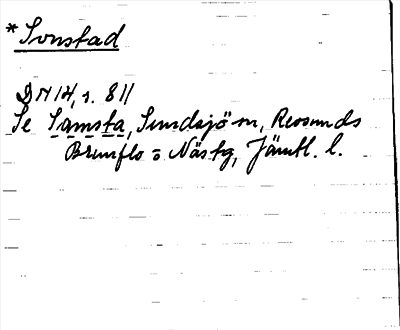 *Sonstad
DN 14, s. 811
Se Samsta, Sundsjö sn, Revsunds
Brunflo o Näs tg, Jämtl. l.